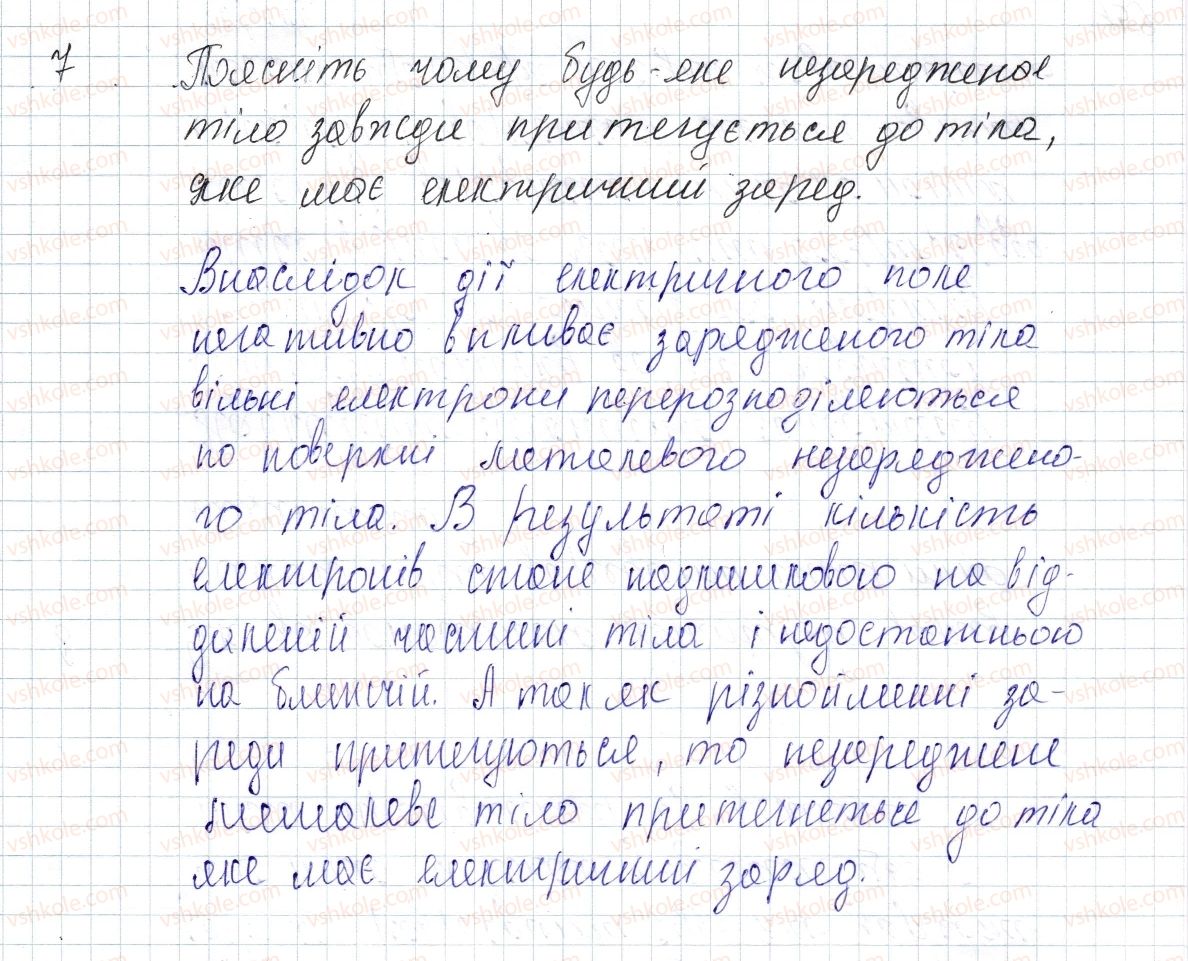 7 Поясніть чому будь-яке незаряджене
тіло завжди притягується до тіла,
яке має електричний заряд.
Внаслідок дії електричного поле
негативно впливає зарядженого тіла
вільні електрони перерозподіляються
по поверхні металевого незаряджено-
го тіла. В результаті кількість
електронів стане надлишковою на від-
даленій частині тіла і недостатньою
на ближчій. А так як різнойменні за-
ряди притягуються, то незаряджене
металеве тіло притягнеться до тіла
яке має електричний заряд.